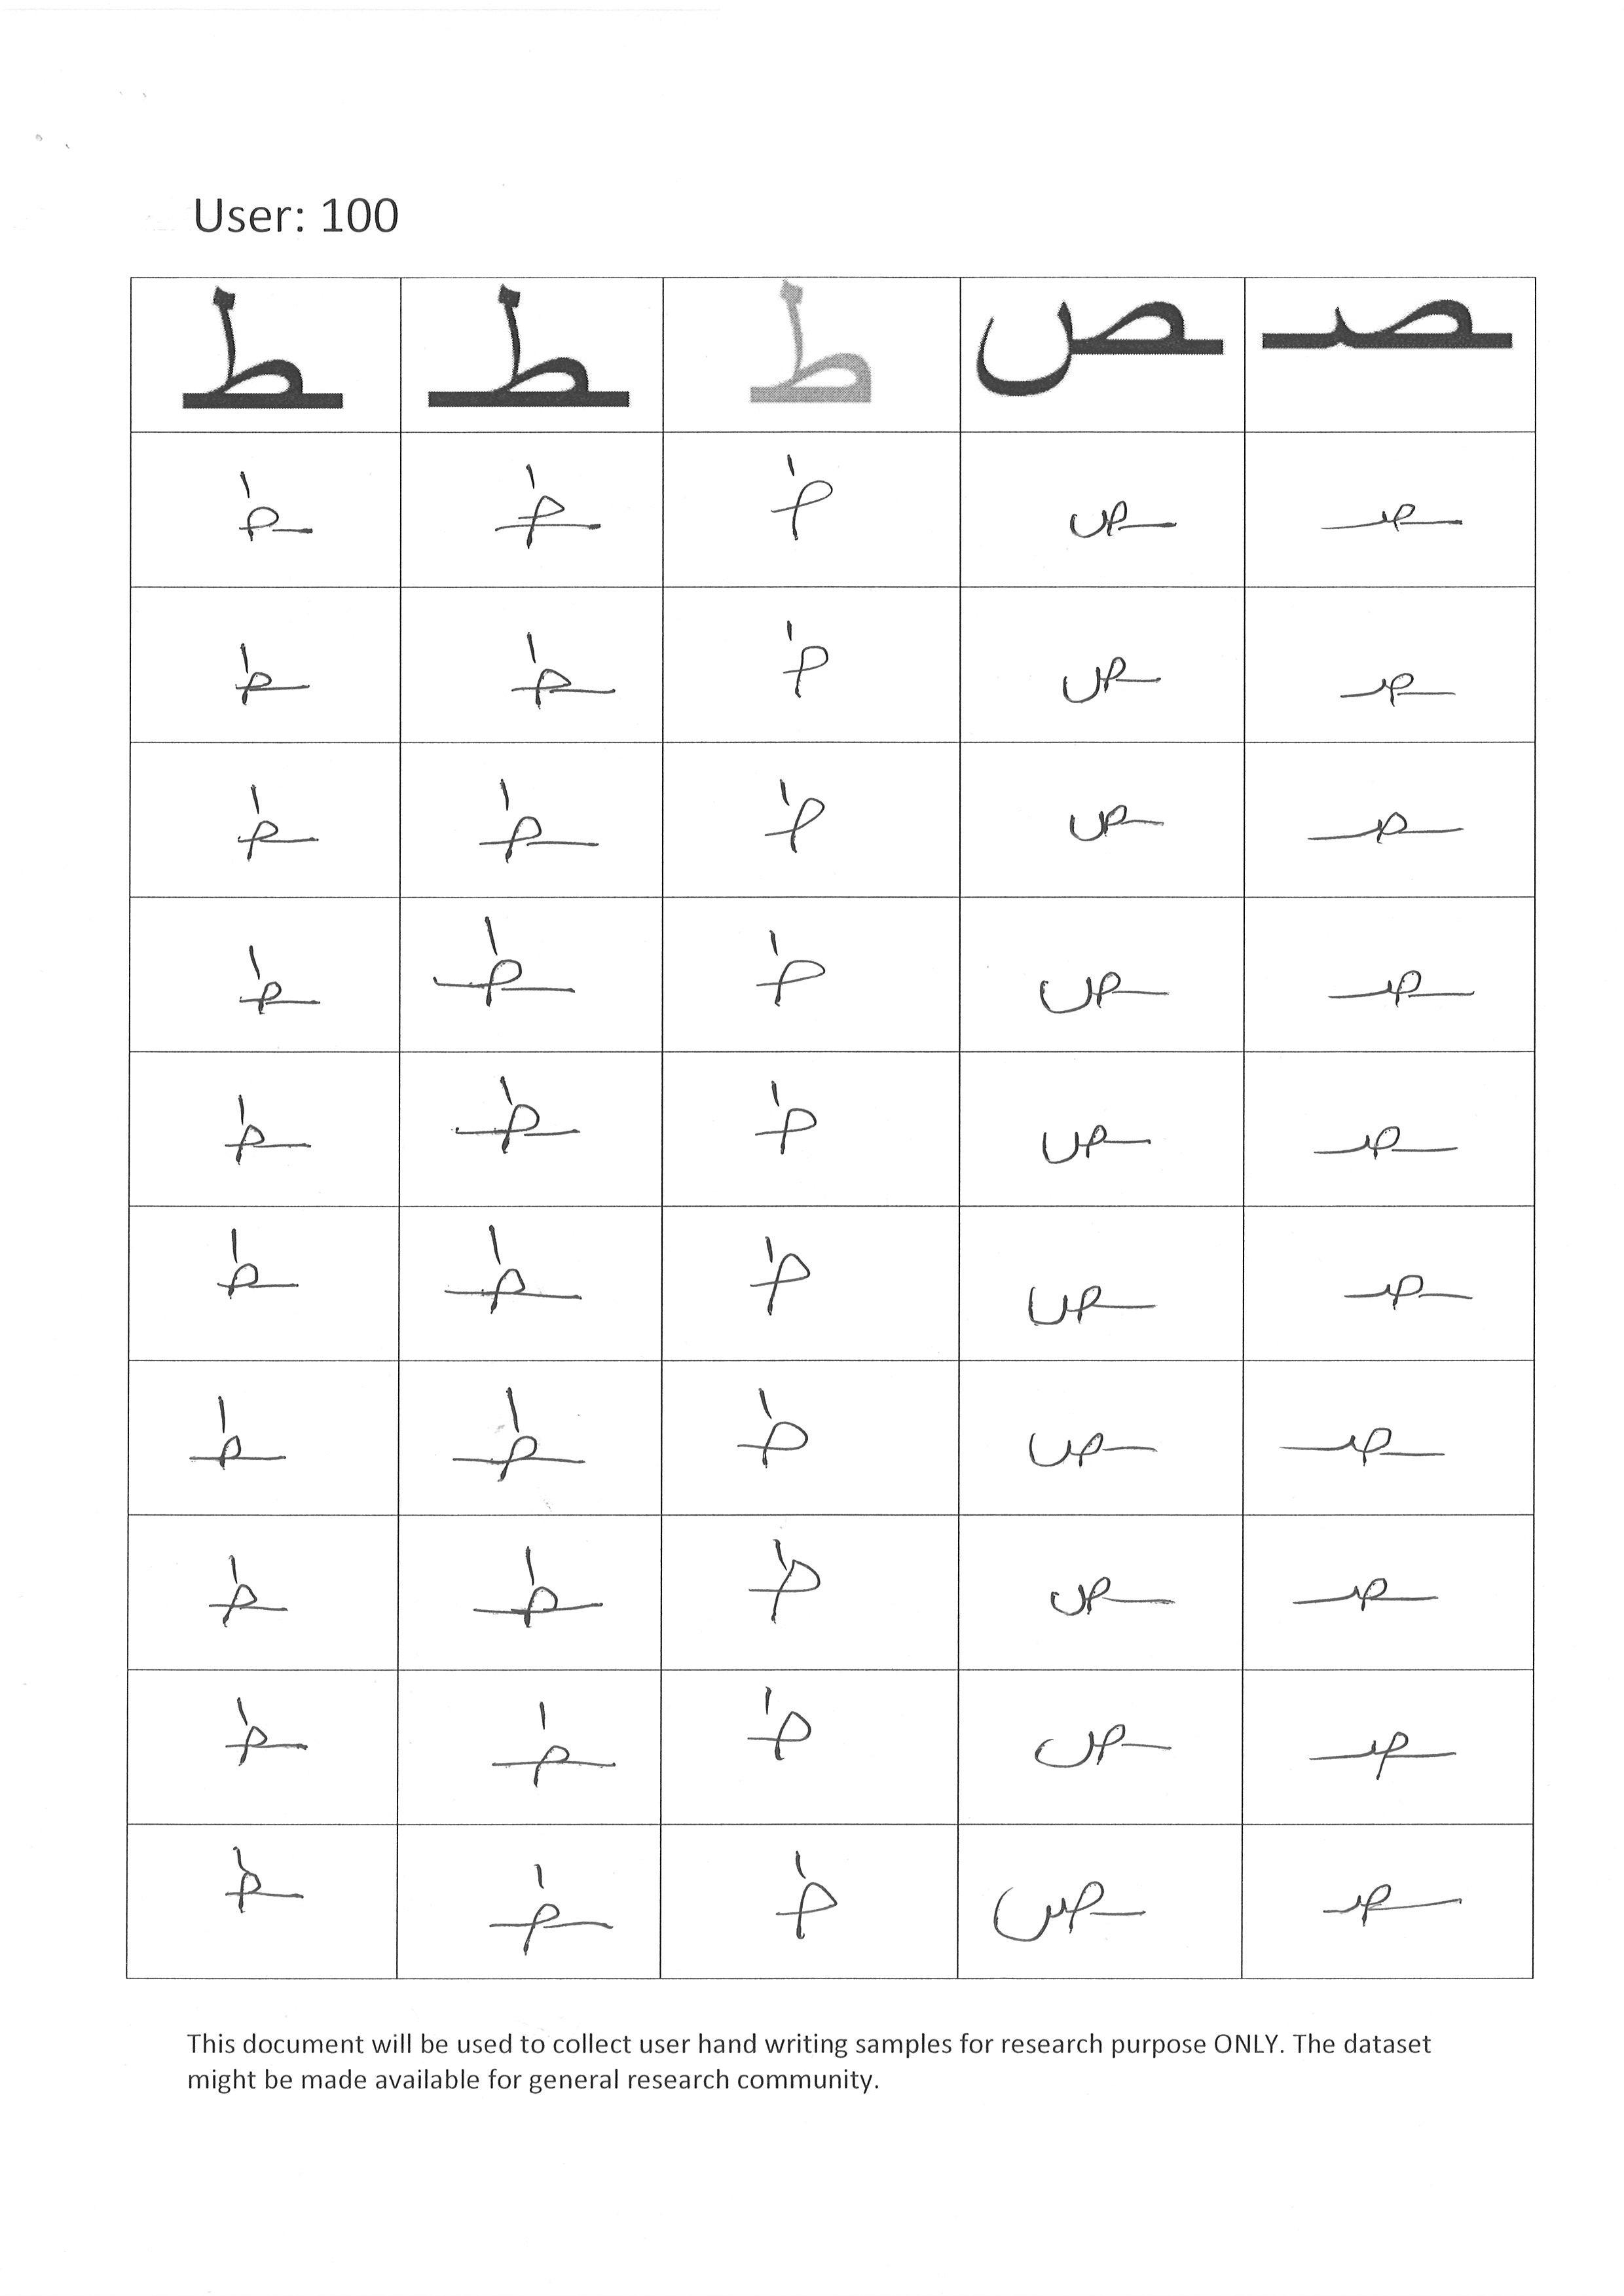 User: 100
ـط ـطـ ط ـص ـصـ
ـط ـطـ ط ـص ـصـ
ـط ـطـ ط ـص ـصـ
ـط ـطـ ط ـص ـصـ
ـط ـطـ ط ـص ـصـ
ـط ـطـ ط ـص ـصـ
ـط ـطـ ط ـص ـصـ
ـط ـطـ ط ـص ـصـ
ـط ـطـ ط ـص ـصـ
ـط ـطـ ط ـص ـصـ
ـط ـطـ ط ـص ـصـ
This document will be used to collect user hand writing samples for research purpose ONLY. The dataset
might be made available for general research community.